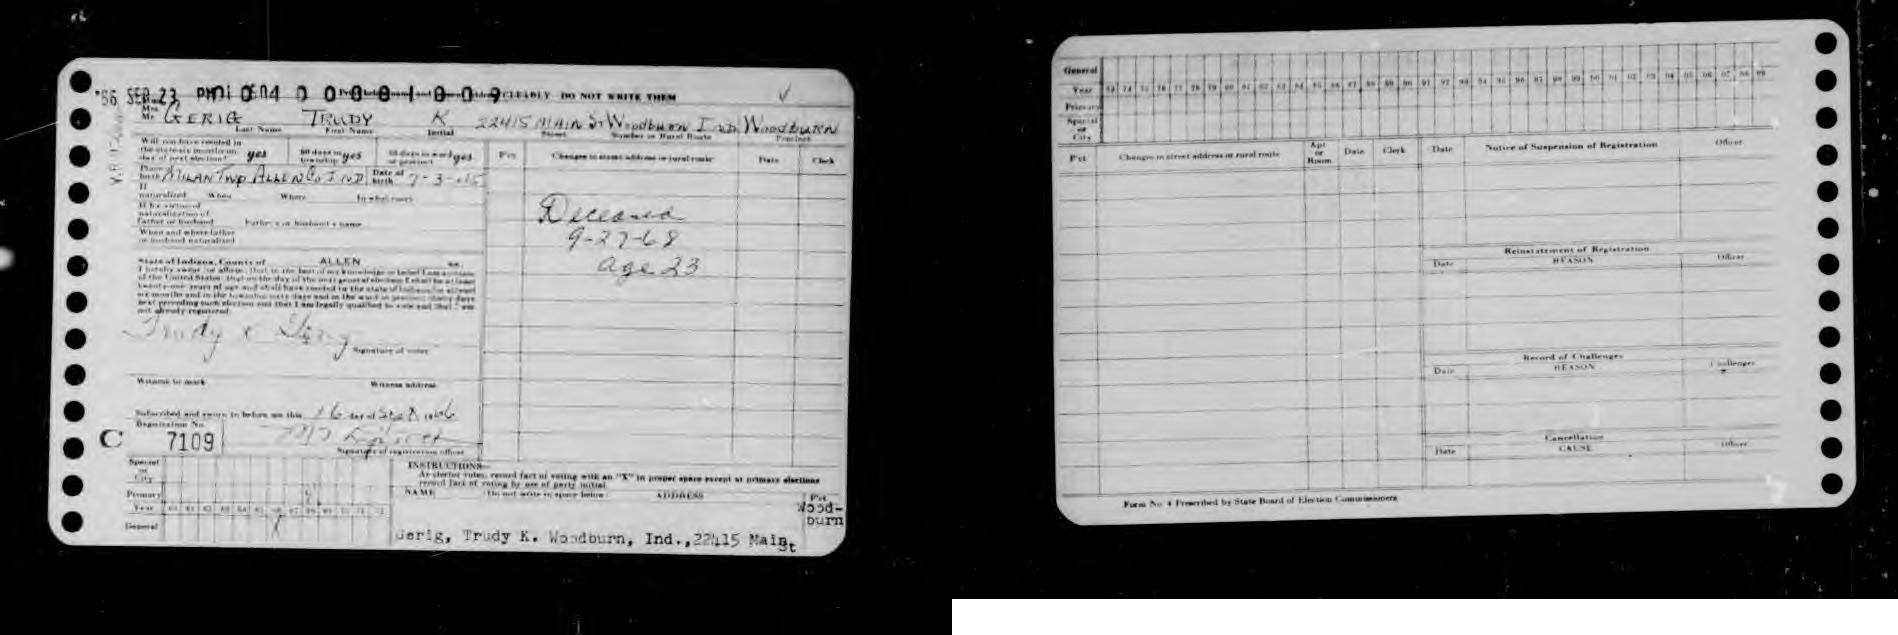 '66 SEP 23 PM 1 04 0 0 0 0 1 0 0 9 CLEARLY DO NOT WRITE THEM
Mrs.
Mr. GERIG TRUDY K 22415 MAIN ST WOODBURN IND WOODBURN
Last Name First Name Initial Street Number or Rural Route Precinct
Will you have resided in
the state six months on
day of next election? yes 60 days in township yes 30 days in ward or precinct yes
Place birth MILAN TWP ALLEN CO IND Date of birth 7-3-45
If naturalized When Where In what court
If by virtue of
naturalization of
father or husband Father's or husband's name
When and where father
or husband naturalized
State of Indiana, County of ALLEN ss.
I hereby swear (or affirm) that to the best of my knowledge or belief I am a citizen
of the United States, that on the day of the next general election I shall be at least
twenty-one years of age and shall have resided in the state of Indiana
six months and in the township sixty days and in the ward or precinct thirty days
next preceding such election and that I am legally qualified to vote and that I am
not already registered.
Trudy K Gerig
Signature of voter
Witness to mark Witness address
Subscribed and sworn to before me this 16 day of Sept 1966
Registration No.
C 7109
Signature of registration officer
Pct Changes in street address or rural route Date Clerk
Deceased
9-27-68
age 23
Special
or
City
Primary
Year 60 61 62 63 64 65 66 67 68 69 70 71 72
General
INSTRUCTIONS—
As elector votes, record fact of voting with an "X" in proper space except at primary elections
record fact of voting by use of party initial.
NAME (Do not write in space below) ADDRESS Pct
Wood-
burn
Gerig, Trudy K. Woodburn, Ind., 22415 Main St
General
Year 73 74 75 76 77 78 79 80 81 82 83 84 85 86 87 88 89 90 91 92 93 94 95 96 97 98 99 00 01 02 03 04 05 06 07 08 09
Primary
Special
or
City
Pct Changes in street address or rural route Apt or Room Date Clerk Date Notice of Suspension of Registration Officer
Reinstatement of Registration
Date REASON Officer
Record of Challenges
Date REASON Challenger
Cancellation
Date CAUSE Officer
Form No. 4 Prescribed by State Board of Election Commissioners